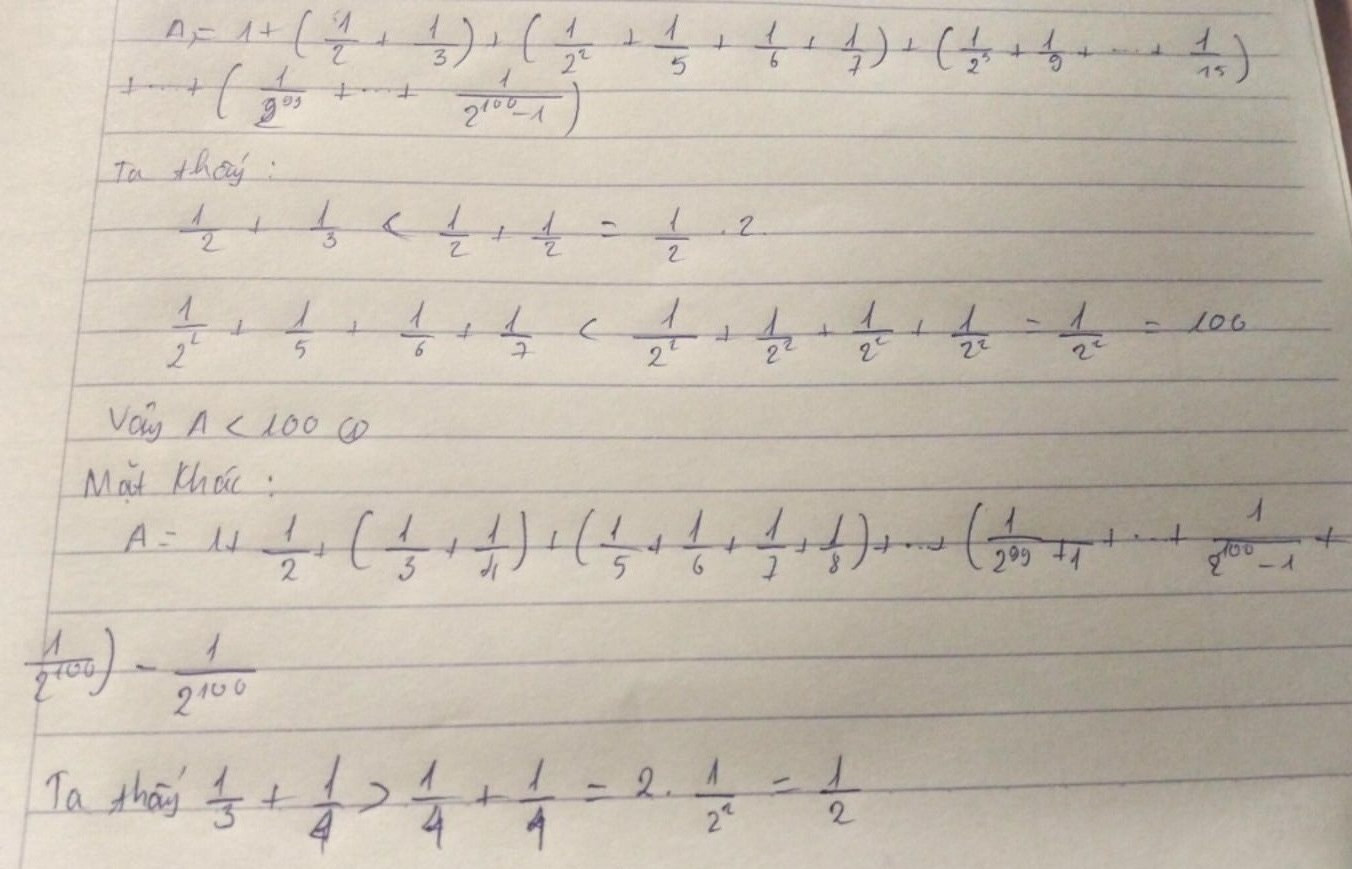 A = 1 + (1/2 + 1/3) + (1/2² + 1/5 + 1/6 + 1/7) + (1/2³ + 1/9 + ... + 1/15)
+ ... + (1/2⁹⁹ + ... + 1/(2¹⁰⁰-1))
Ta thấy :
1/2 + 1/3 < 1/2 + 1/2 = 1/2 . 2.
1/2² + 1/5 + 1/6 + 1/7 < 1/2² + 1/2² + 1/2² + 1/2² = 1/2² = 100
Vậy A < 100 ①
Mặt khác :
A = 1 + 1/2 + (1/3 + 1/4) + (1/5 + 1/6 + 1/7 + 1/8) + ... + (1/(2⁹⁹+1) + ... + 1/(2¹⁰⁰-1) +
1/2¹⁰⁰) - 1/2¹⁰⁰
Ta thấy 1/3 + 1/4 > 1/4 + 1/4 = 2. 1/2² = 1/2